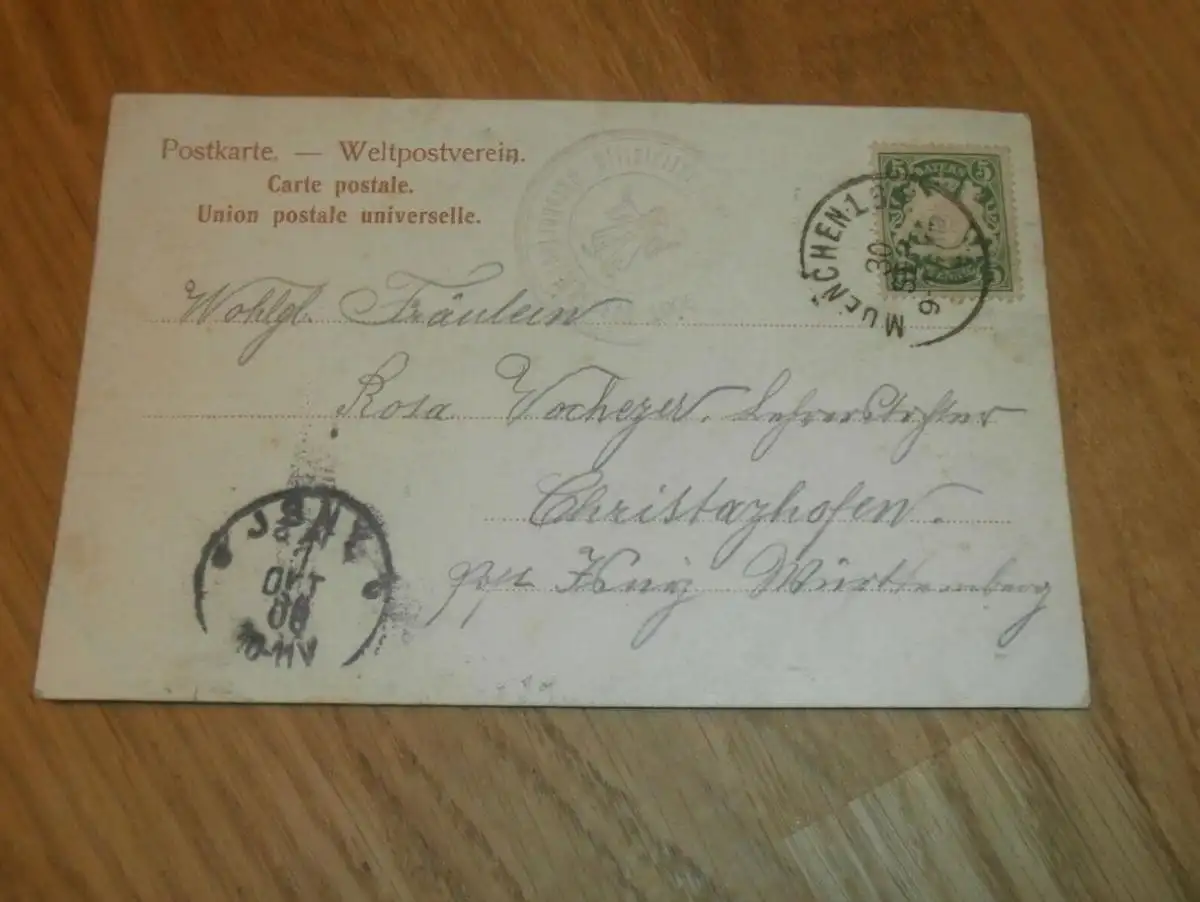 Postkarte. — Weltpostverein.
Carte postale.
Union postale universelle.
5 BAYERN 5
MUENCHEN.1
30
Wohlgl. Fräulein
Rosa Vochezer. Lehrerstochter
Christazhofen.
Post Isny Württemberg
JSNY
OKT